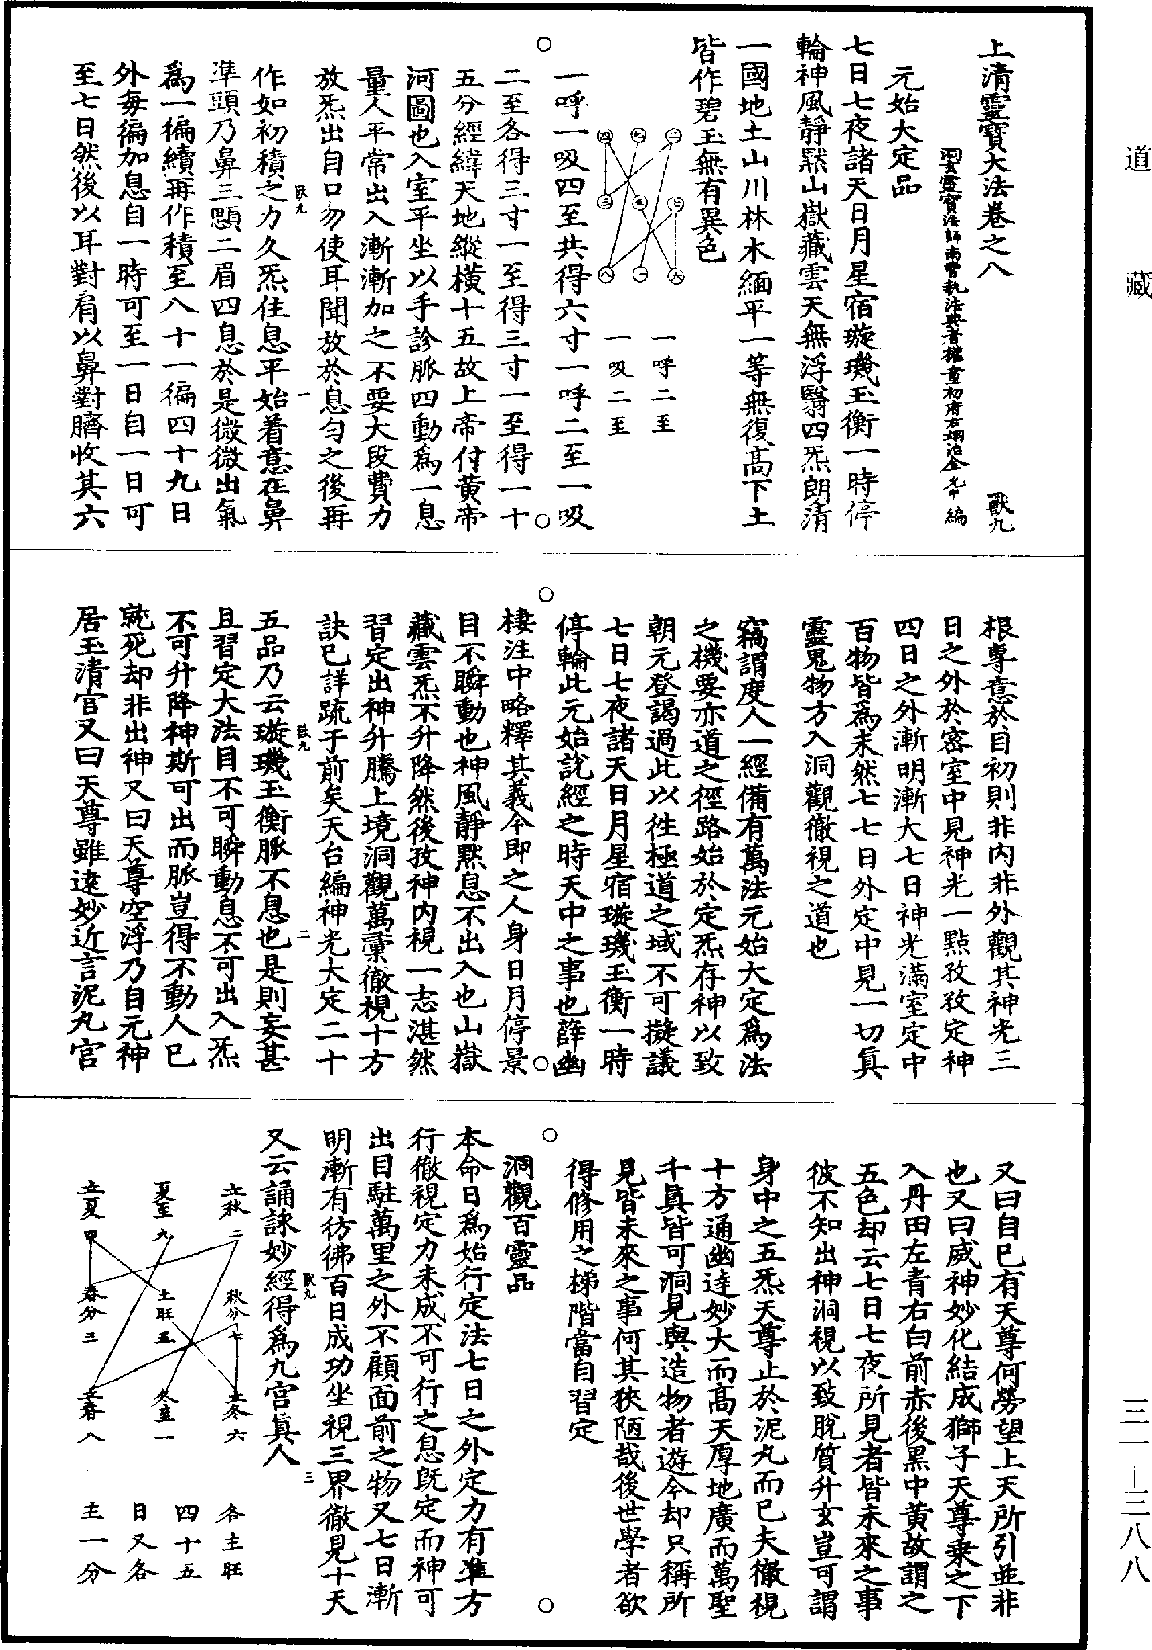 道藏
三一—三八八
上清靈寶大法卷之八
獸九
洞玄靈寶法師南曹執法典者權童初府右翊治金允中編
元始大定品
七日七夜諸天日月星宿璇璣玉衡一時停
輪神風靜默山嶽藏雲天無浮翳四炁朗清
一國地土山川林木緬平一等無復高下土
皆作碧玉無有異色
四 九 二
三 五 七
八 一 六
一呼二至
一吸二至
一呼一吸四至共得六寸一呼二至一吸
二至各得三寸一至得三寸一至得一十
五分經緯天地縱橫十五故上帝付黃帝
河圖也入室平坐以手診脈四動為一息
量人平常出入漸漸加之不要大段費力
放炁出自口勿使耳聞放於息勻之後再
作如初積之力久炁住息平始着意在鼻
準頭乃鼻三顋二眉四息於是微微出氣
為一徧續再作積至八十一徧四十九日
外每徧加息自一時可至一日自一日可
至七日然後以耳對肩以鼻對臍收其六
獸九 一
根專意於目初則非內非外觀其神光三
日之外於密室中見神光一點孜孜定神
四日之外漸明漸大七日神光滿室定中
百物皆為未然七七日外定中見一切真
靈鬼物方入洞觀徹視之道也
竊謂度人一經備有萬法元始大定為法
之機要亦道之徑路始於定炁存神以致
朝元登謁過此以徃極道之域不可擬議
七日七夜諸天日月星宿璇璣玉衡一時
停輪此元始說經之時天中之事也薛幽
棲注中略釋其義今即之人身日月停景
目不瞬動也神風靜默息不出入也山嶽
藏雲炁不升降然後孜神內視一志湛然
習定出神升騰上境洞觀萬彙徹視十方
訣已詳疏于前矣天台編神光大定二十
五品乃云璇璣玉衡脈不息也是則妄甚
且習定大法目不可瞬動息不可出入炁
不可升降神斯可出而脈豈得不動人已
就死却非出神又曰天尊空浮乃自元神
居玉清宮又曰天尊雖遠妙近言泥丸宮
獸九 二
又曰自已有天尊何勞望上天所引並非
也又曰威神妙化結成獅子天尊乗之下
入丹田左青右白前赤後黑中黃故謂之
五色却云七日七夜所見者皆未來之事
彼不知出神洞視以致脫質升玄豈可謂
身中之五炁天尊止於泥丸而已夫徹視
十方通幽達妙大而高天厚地廣而萬聖
千真皆可洞見與造物者遊今却只稱所
見皆未來之事何其狹陋哉後世學者欲
得修用之梯階當自習定
洞觀百靈品
本命日為始行定法七日之外定力有準方
行徹視定力未成不可行之息既定而神可
出目駐萬里之外不顧面前之物又七日漸
明漸有彷彿百日成功坐視三界徹見十天
又云誦詠妙經得為九宮真人
獸九 三
立秋二 秋分七 立冬六
夏至九 土旺五 冬至一
立夏四 春分三 立春八
各主旺
四十五
日又各
主一分